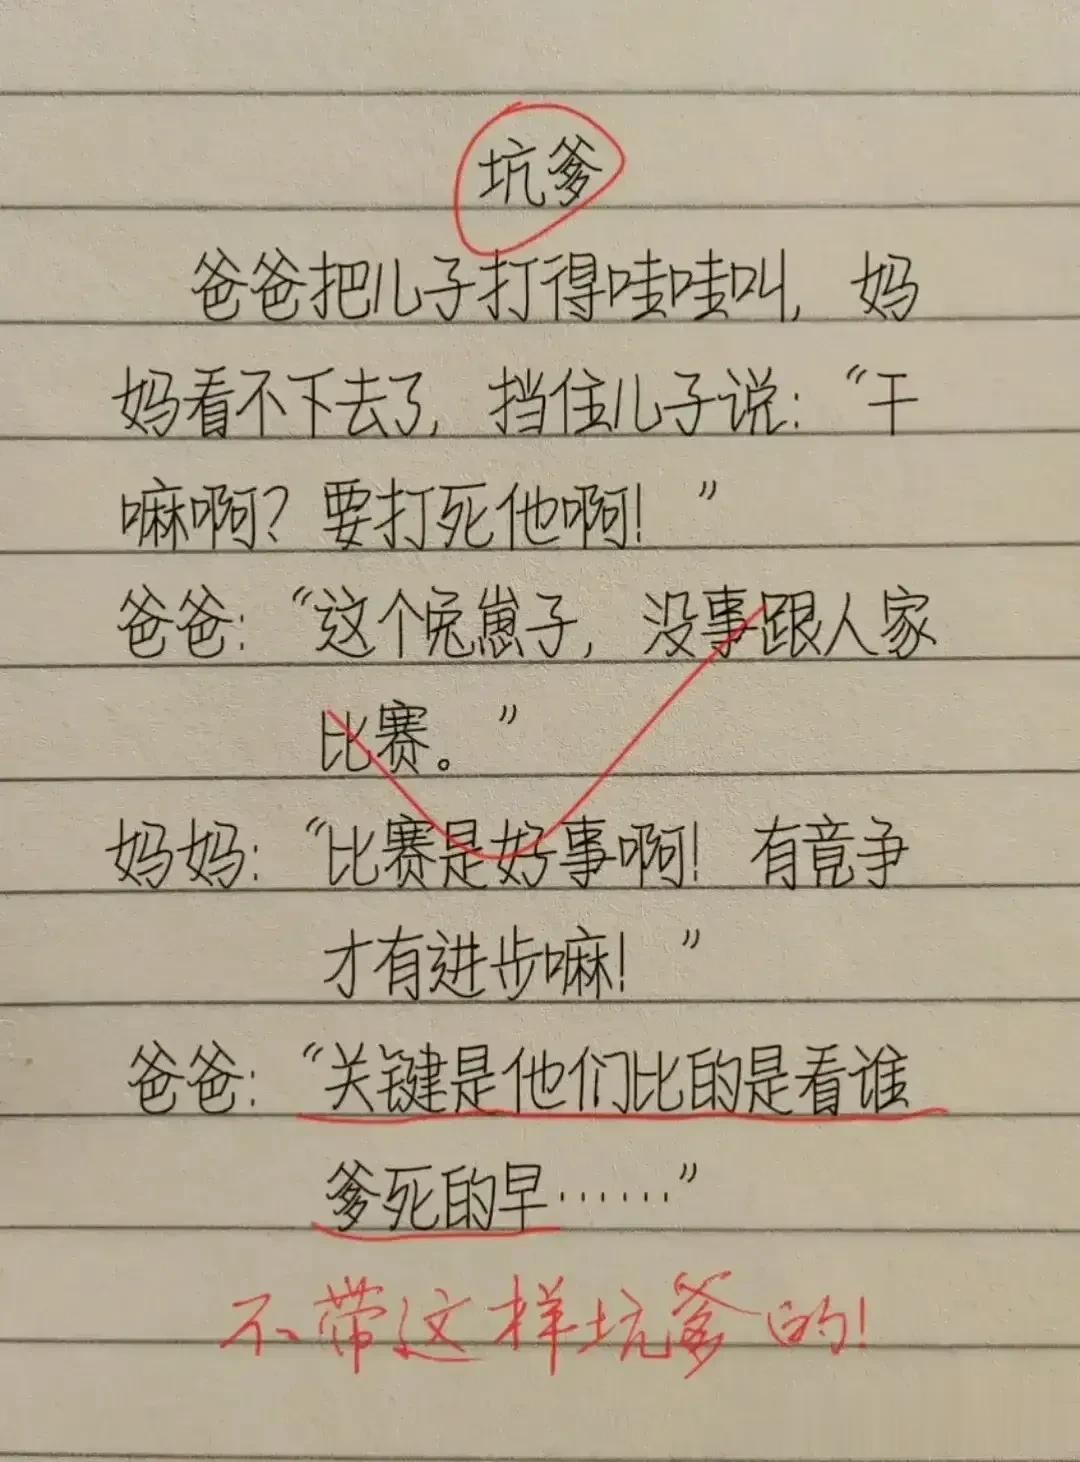 坑爹
爸爸把儿子打得哇哇叫，妈
妈看不下去了，挡住儿子说：“干
嘛啊？要打死他啊！”
爸爸：“这个兔崽子，没事跟人家
比赛。”
妈妈：“比赛是好事啊！有竟争
才有进步嘛！”
爸爸：“关键是他们比的是看谁
爹死的早……”
不带这样坑爹的！